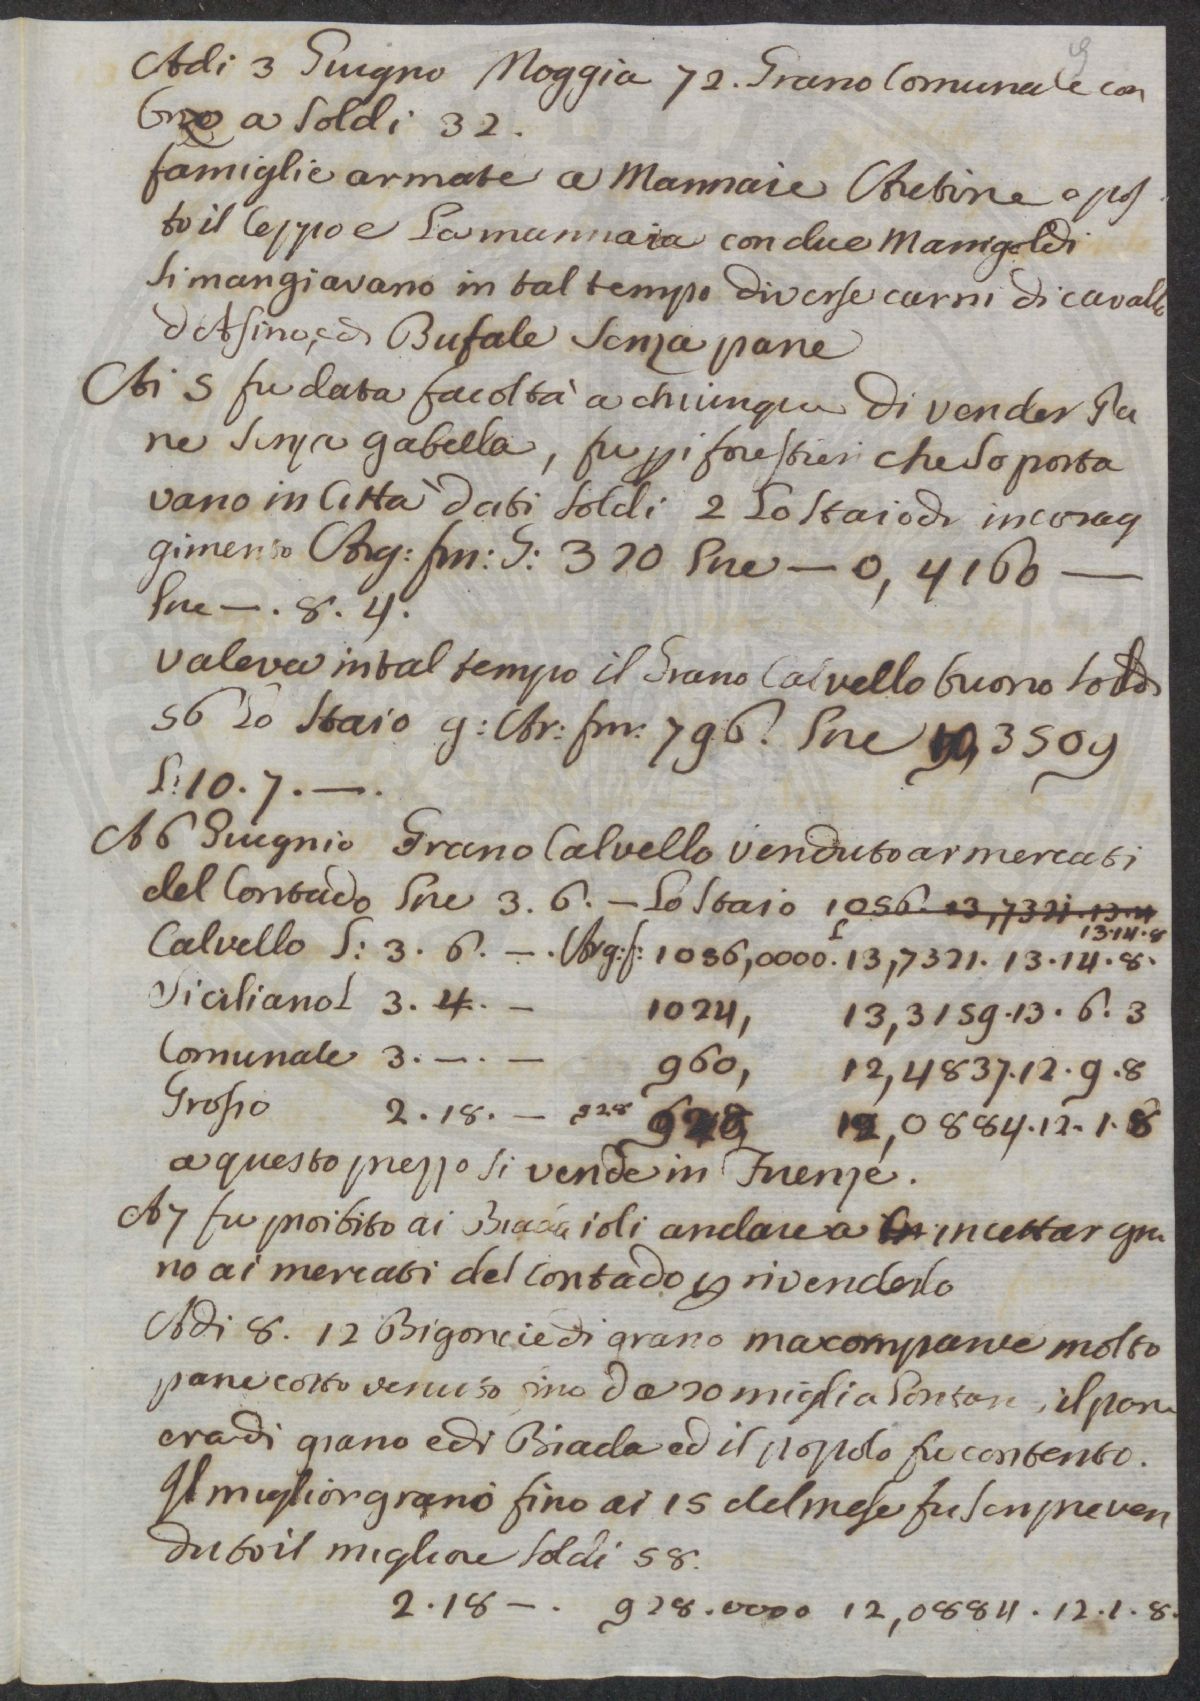 Adi 3 Giugno Moggia 72. Grano Comunale con
Orzo a Soldi 32.
famiglie armate a Mannaie Aretine e pos
to il Ceppo e La mannaia con due Manigoldi
Si mangiavano in tal tempo diverse carni di cavallo
d'Asino, e di Bufale Senza pane
Ai 5 fu data facoltà a chiunque di vender Pa
ne Senza gabella, fu pi forestieri che Lo porta
vano in Città dati Soldi 2 Lo Staio di incorag
gimento Arg: fin: G: 320 Lire — 0, 4160 —
Lire — . 8. 4.
valeva in tal tempo il Grano Calvello buono Soldi
56 Lo Staio g: Ar: fin: 796. Lire 10,3509
L: 10. 7. — .
A 6 Giugnio Grano Calvello venduto ai mercati
del Contado Lire 3. 6. — Lo Staio 1056. 13,7321. 13. 4
13.14.8
Calvello L: 3. 6. — . Arg: f: 1056,0000. £ 13,7321. 13. 14. 8.
Siciliano L 3. 4. — 1024, 13,3159. 13. 6. 3
Comunale 3. — . — 960, 12,4837. 12. 9. 8
Grosso 2. 18. — 928 928 12,0884. 12. 1. 8
a questo prezzo si vende in Firenze.
A 7 fu proibito ai Biadaioli andare a incettar gra
no ai mercati del Contado p rivenderlo
Adi 8. 12 Bigoncie di grano ma comparve molto
pane cotto venuto fino da 20 miglia Lontano, il pane
era di grano e di Biada ed il popolo fu contento.
Il miglior grano fino ai 15 del mese fu Sempre ven
duto il migliore Soldi 58.
2. 18 — . 928.0000 12,0884. 12. 1. 8.